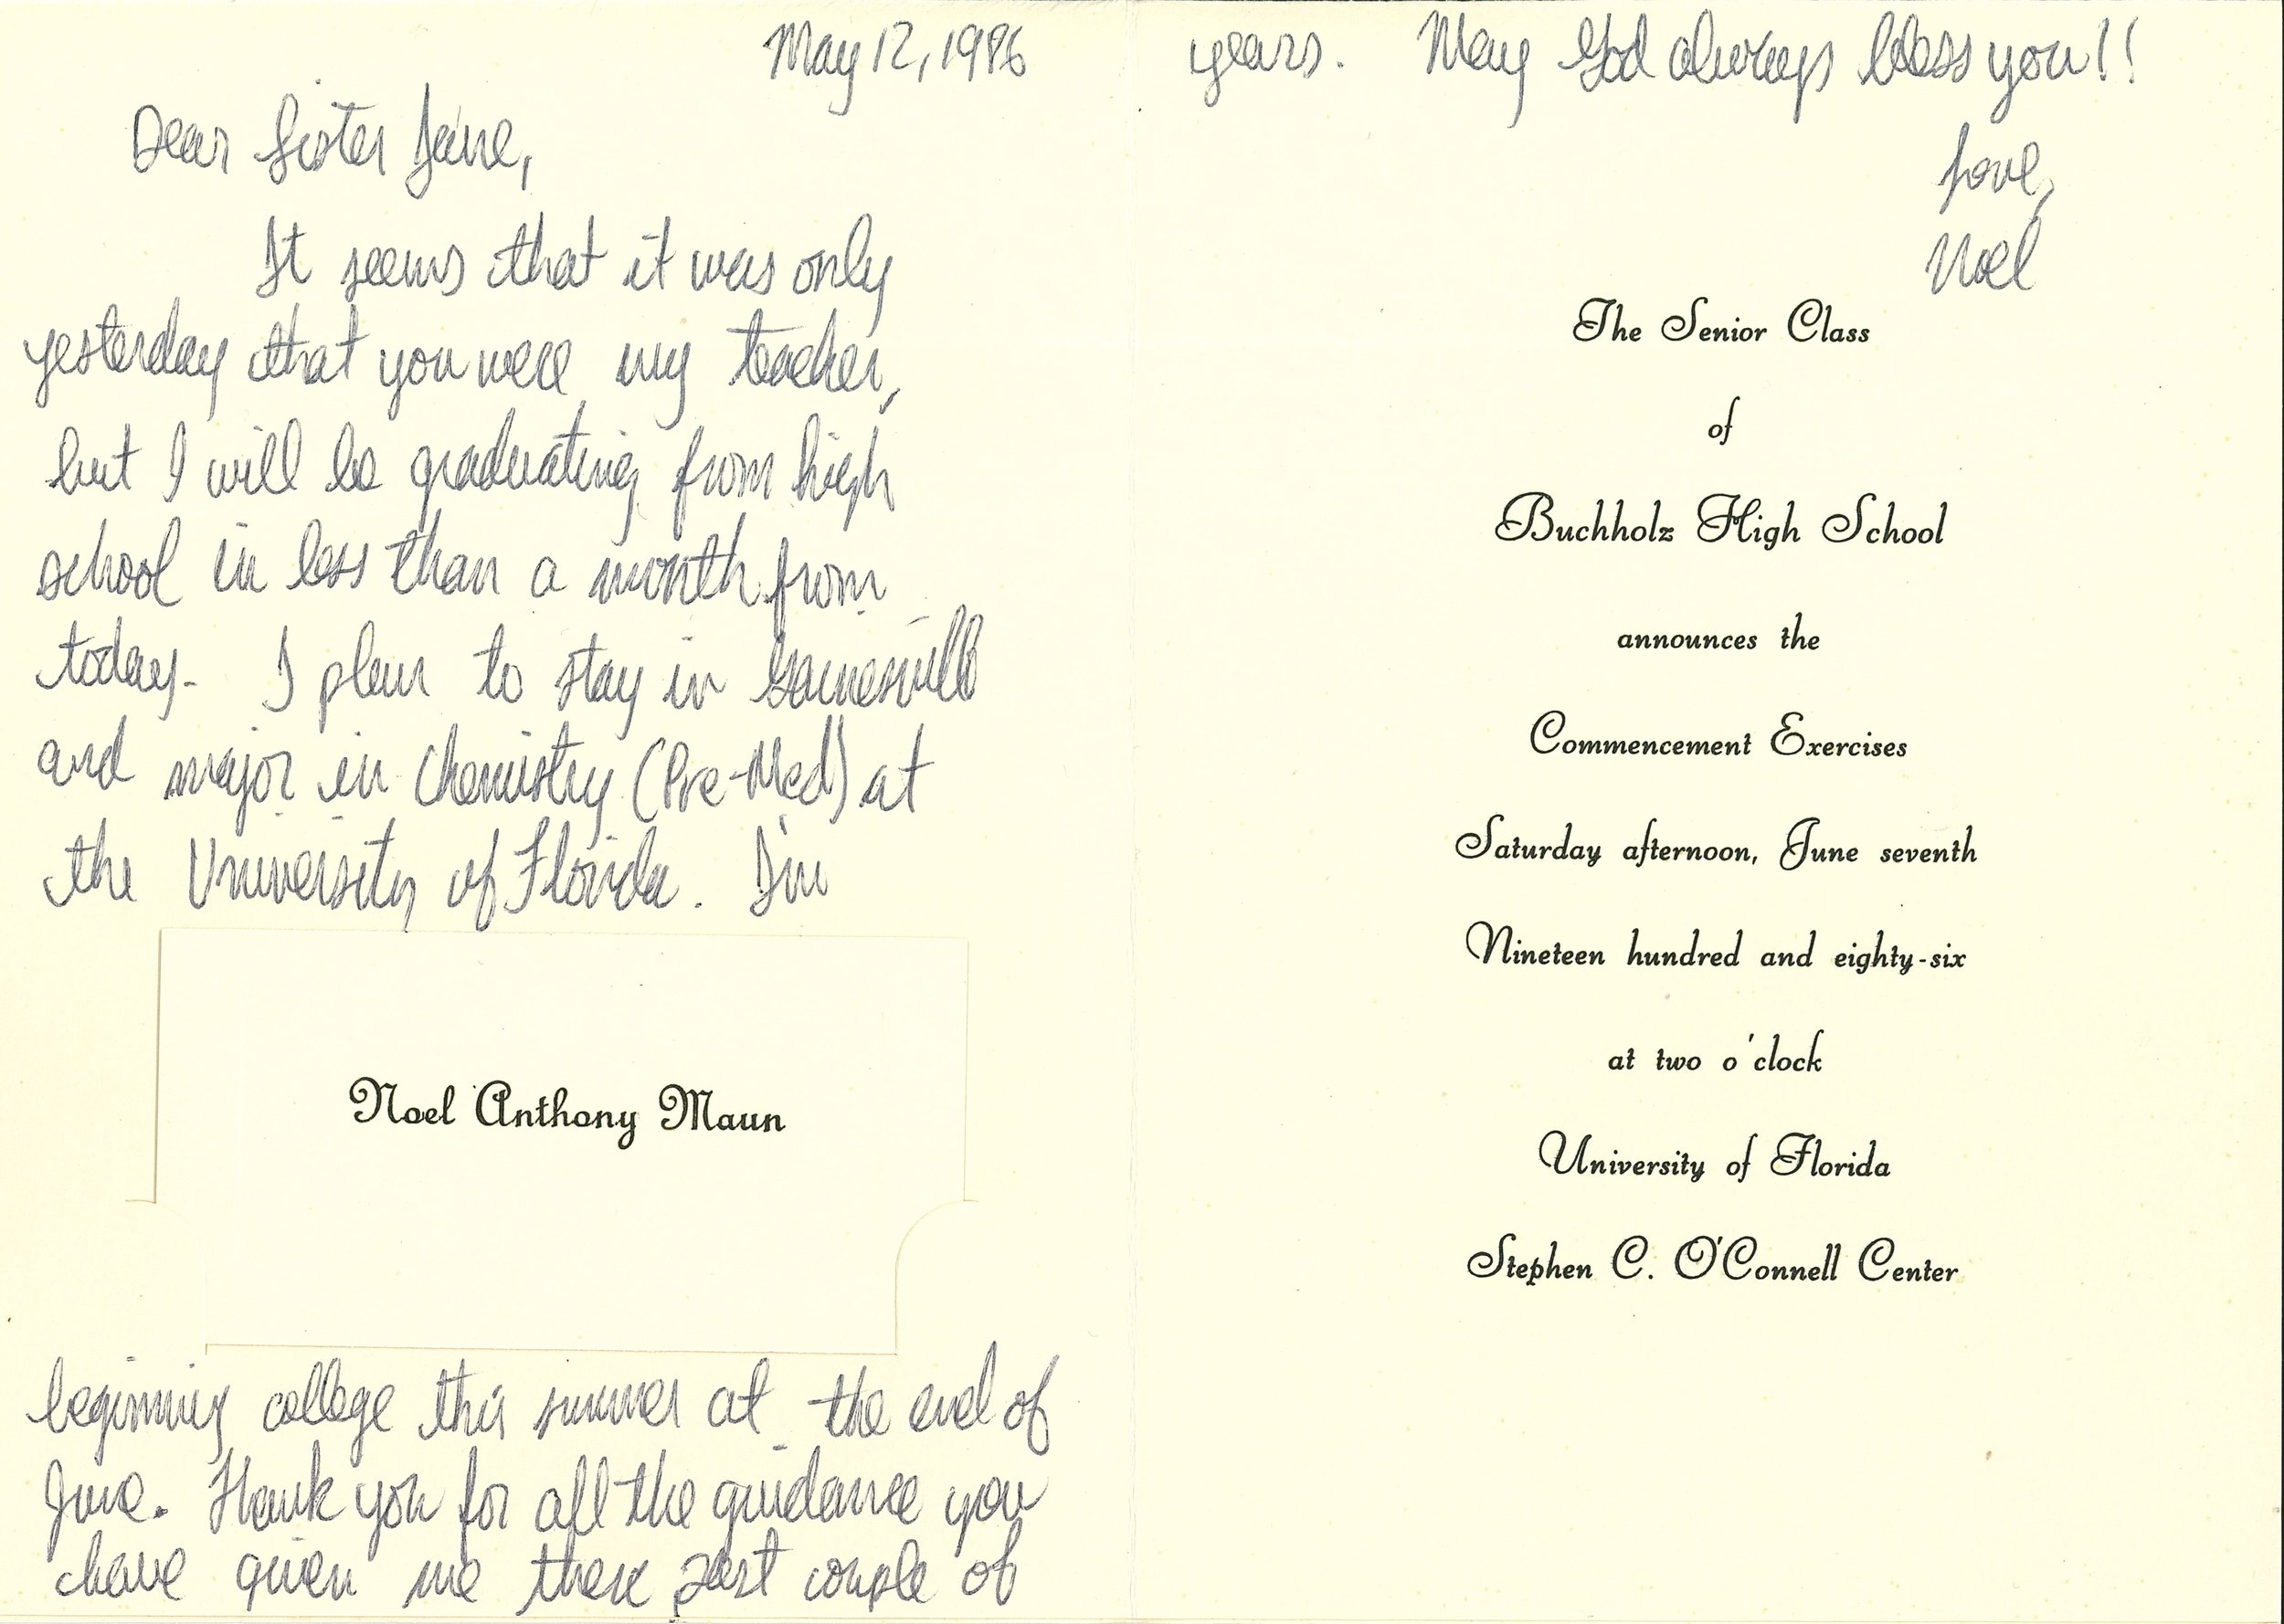 May 12, 1986
Dear Sister Jane,
It seems that it was only
yesterday that you were my teacher,
but I will be graduating from high
school in less than a month from
today. I plan to stay in Gainesville
and major in Chemistry (Pre-Med) at
the University of Florida. I'm
Noel Anthony Maun
beginning college this summer at the end of
June. Thank you for all the guidance you
have given me these past couple of
years. May God always bless you!!
Love,
Noel
The Senior Class
of
Buchholz High School
announces the
Commencement Exercises
Saturday afternoon, June seventh
Nineteen hundred and eighty-six
at two o'clock
University of Florida
Stephen C. O'Connell Center